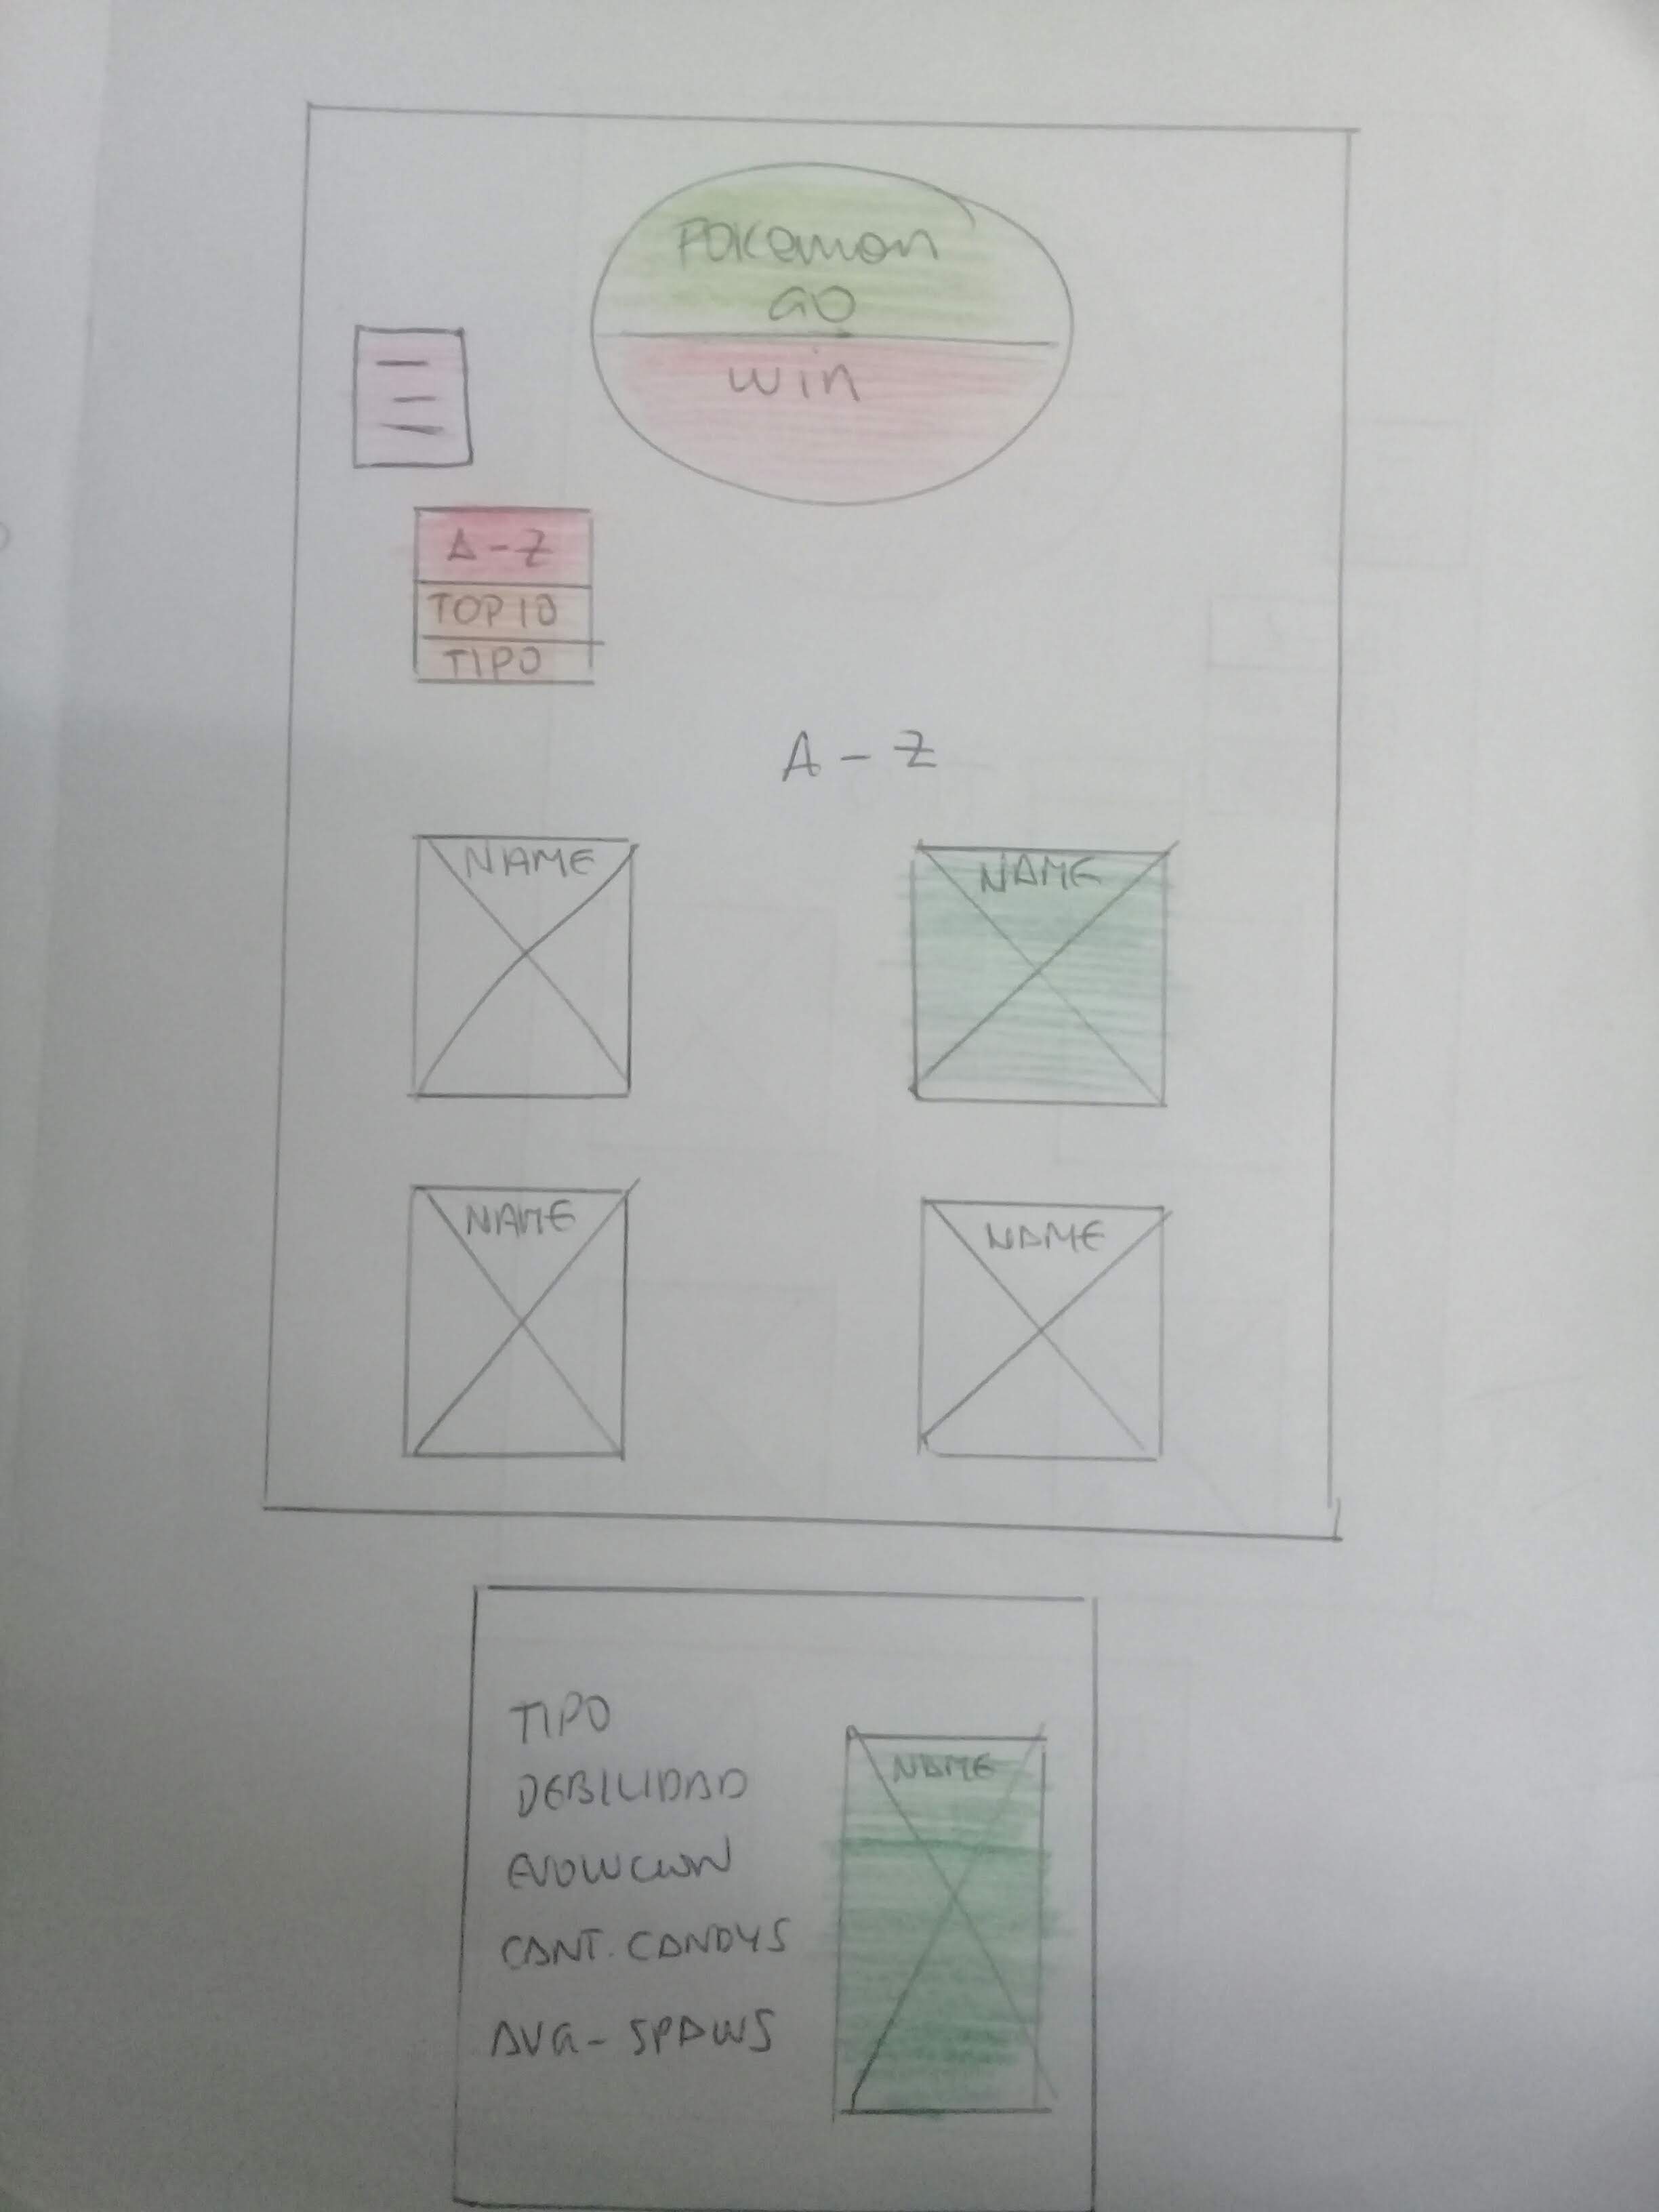 POKemon
GO
win
A-Z
TOP 10
TIPO
A - Z
NAME
NAME
NAME
NAME
TIPO
DEBILIDAD
NAME
EVOLUCION
CANT. CANDYS
AVG - SPAWS